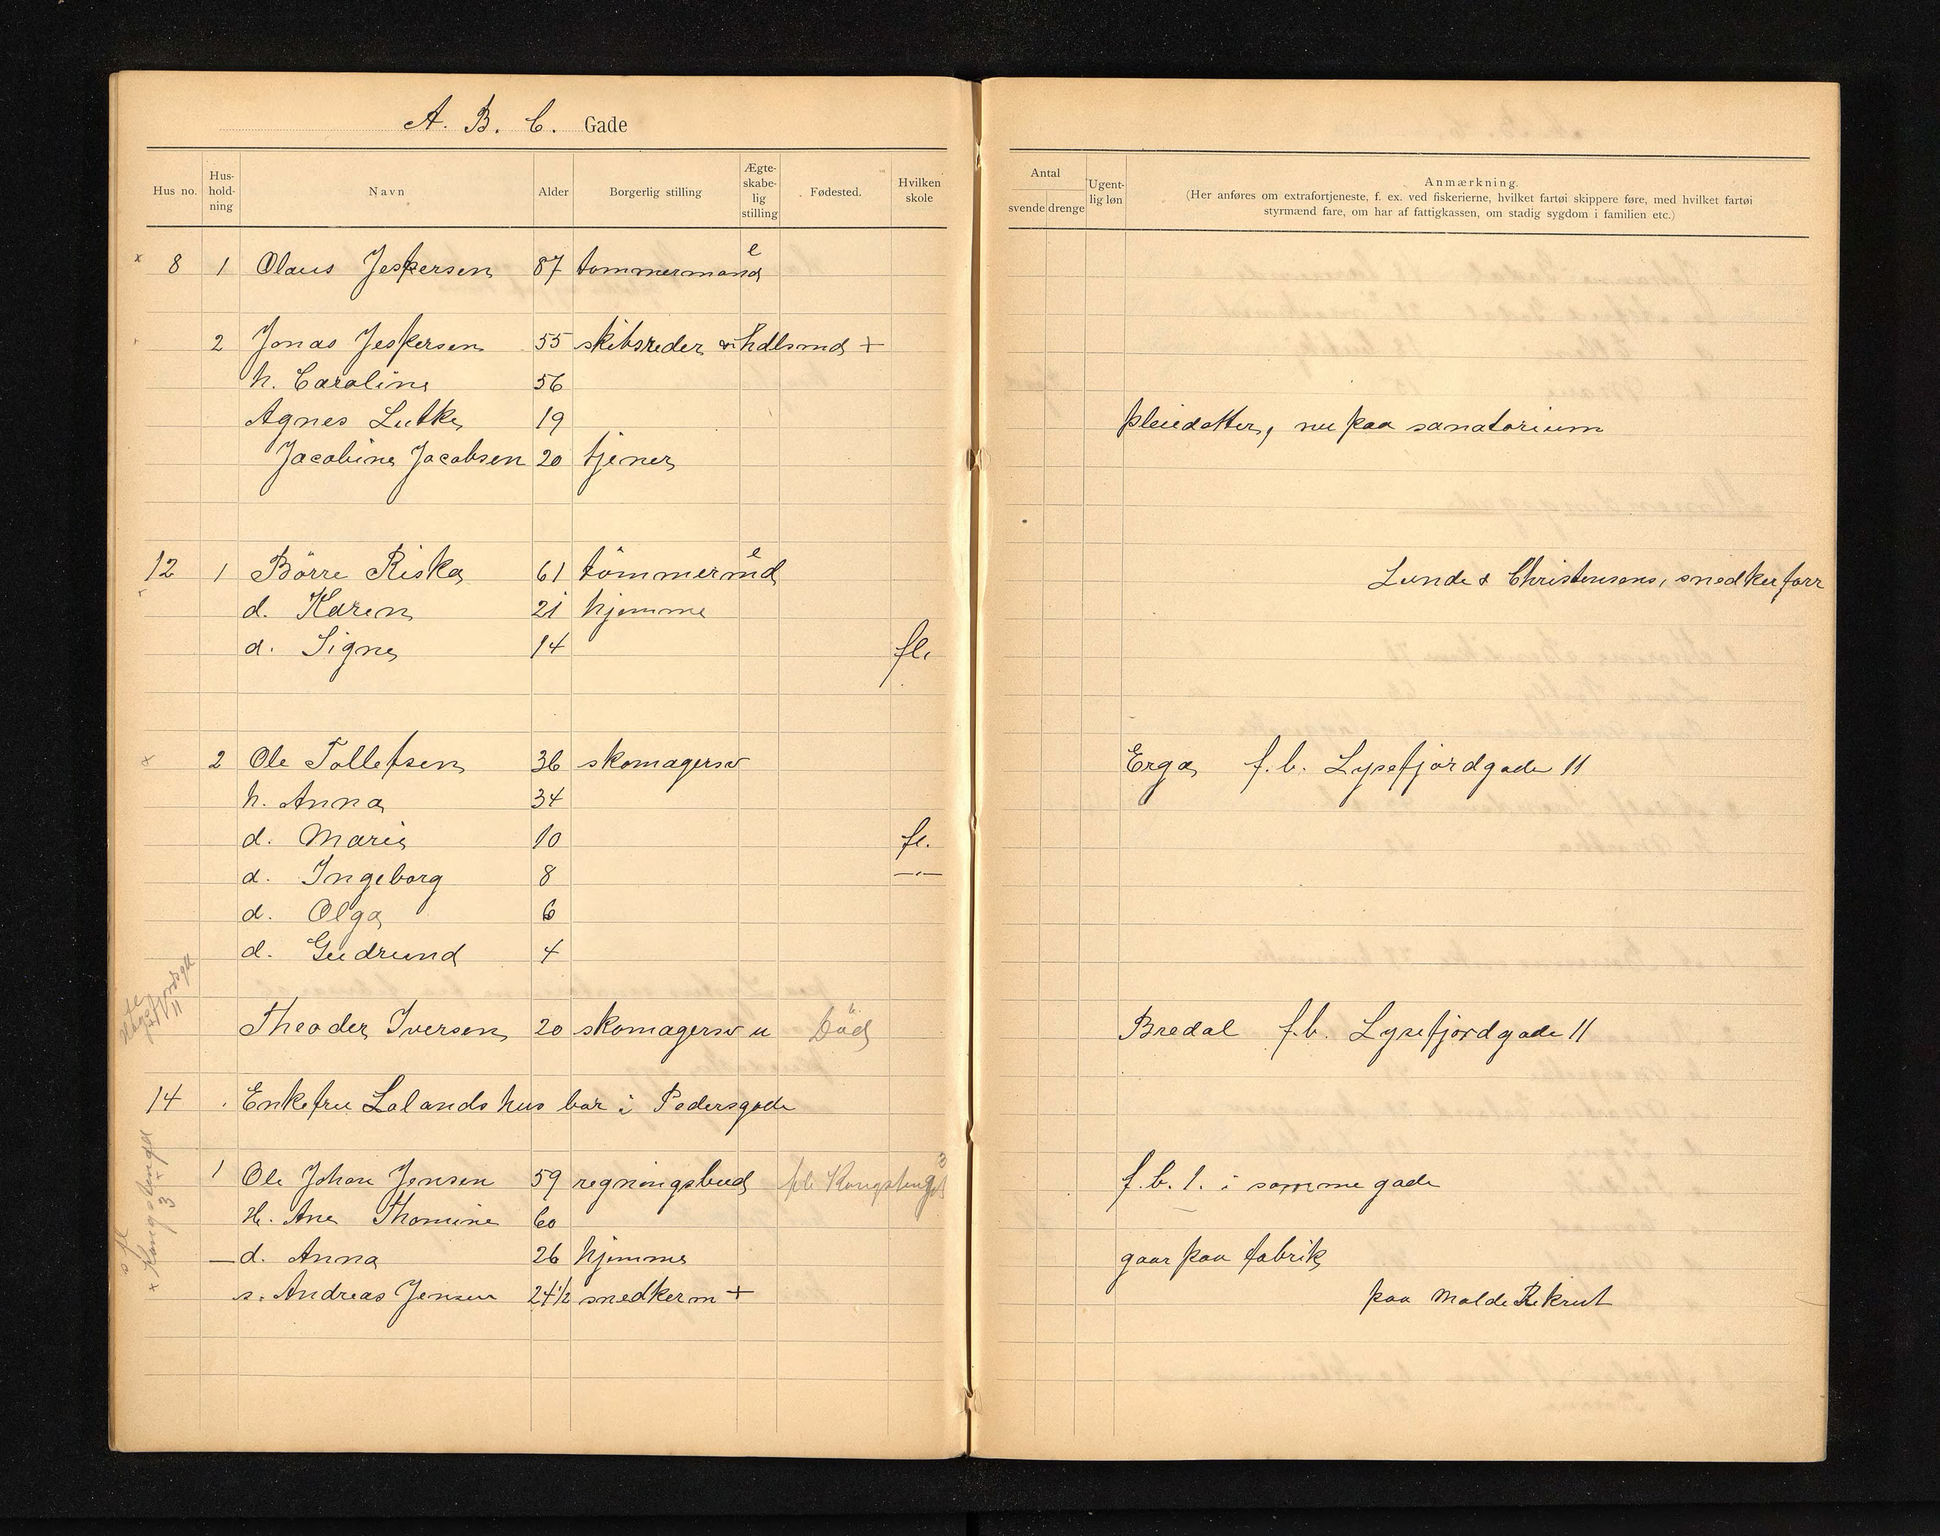 A. B. C. Gade
Hus no. Hus-hold-ning Navn Alder Borgerlig stilling Ægte-skabe-lig stilling Fødested. Hvilken skole
Antal svende drenge Ugent-lig løn Anmærkning.
(Her anføres om extrafortjeneste, f. ex. ved fiskerierne, hvilket fartøi skippere føre, med hvilket fartøi
styrmænd fare, om har af fattigkassen, om stadig sygdom i familien etc.)
x 8 1 Olaus Jespersen 87 tømmermand e
2 Jonas Jespersen 55 skibsreder hdlsmd +
h. Caroline 56
Agnes Lutke 19 pleiedatter, nu paa sanatorium
Jacobine Jacobsen 20 tjener
12 1 Börre Riska 61 tömmermd e Lunde & Christensens, snedkerforr
d. Karen 21 hjemme
d. Signe 14 fl.
x 2 Ole Tollefsen 36 skomagersv Erga f. b. Lysefjordgade 11
h. Anna 34
d. Marie 10 fl.
d. Ingeborg 8 —„—
d. Olga 6
d. Gudrund 4
Theodor Iversen 20 skomagersv u Död Bredal f. b. Lysefjordgade 11
14 Enkefru Lalands hus bor i Pedersgade
1 Ole Johan Jensen 59 regningsbud fl. Kongstengt 3 f. b. 1. i samme gade
H. Ane Thomine 60
— d. Anna 26 hjemme gaar paa fabrik
s. Andreas Jensen 24 1/2 snedkerm + paa Malde Rekrut
11
x Kongstengd
3 +